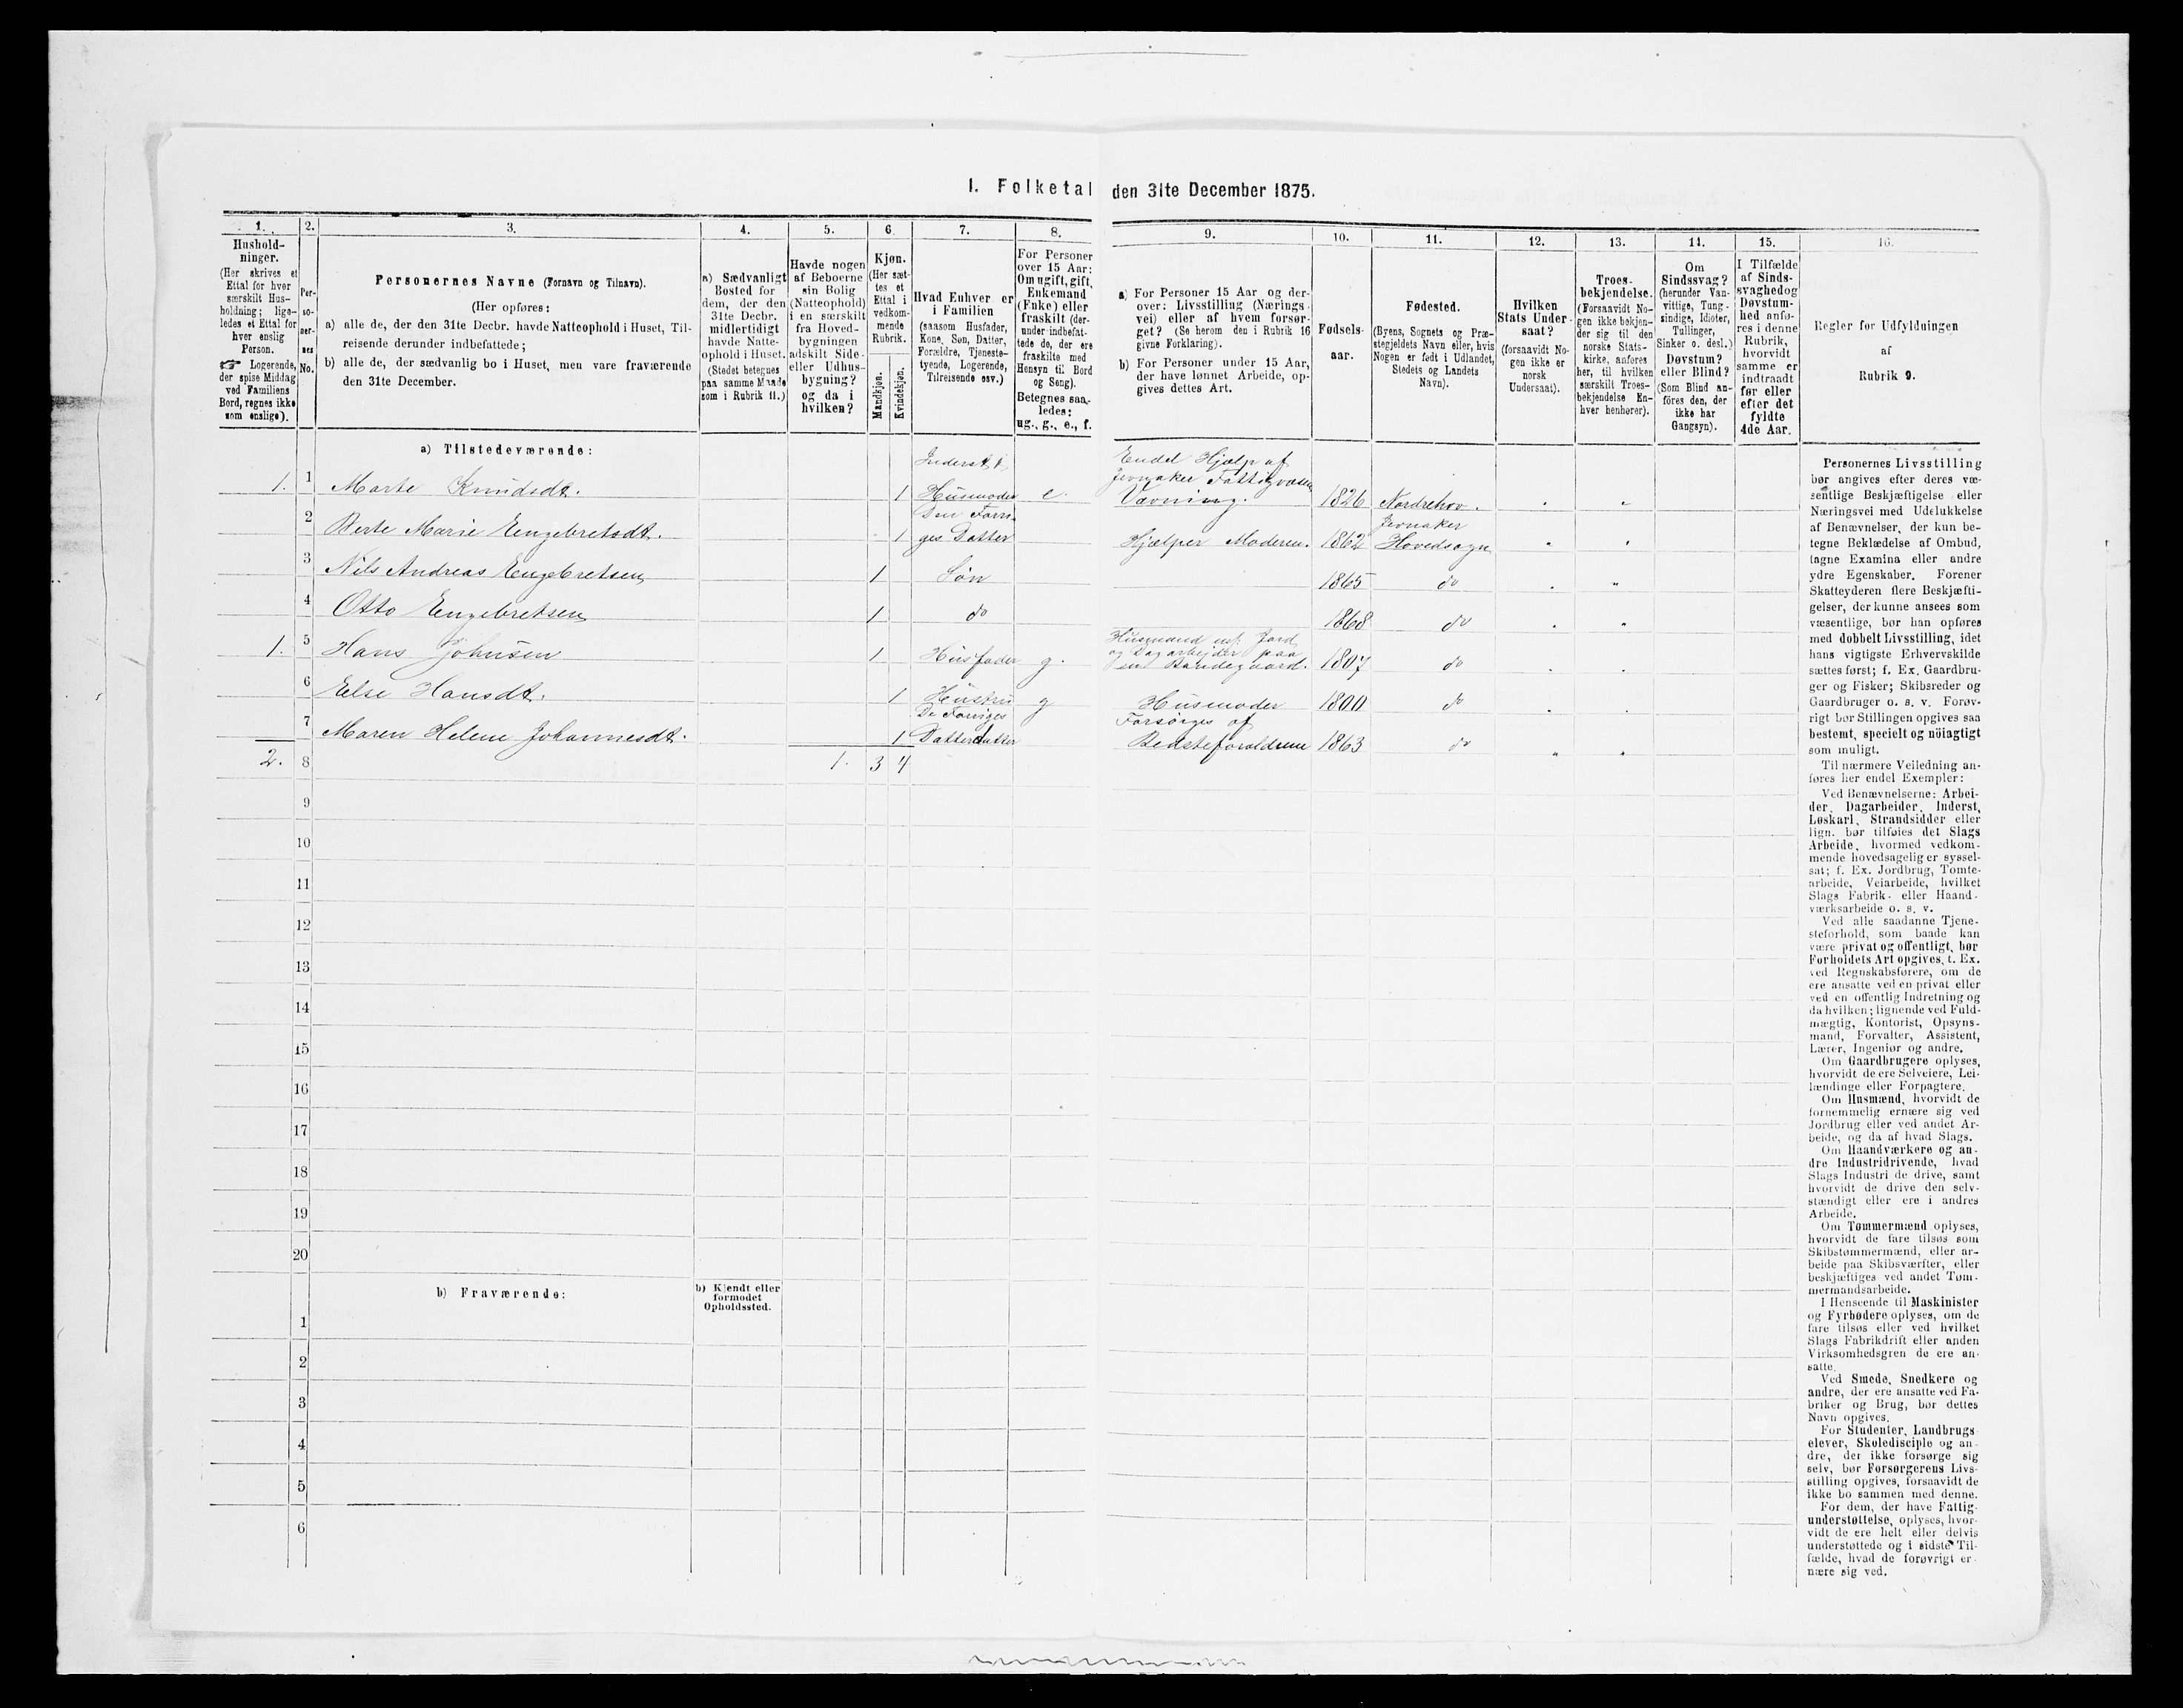 1. Folketal den 31te December 1875.
1.
Hushold-
ninger.
(Her skrives et
Ettal for hver
særskilt Hus-
holdning; lige-
ledes et Ettal for
hver enslig
Person.
☞ Logerende,
der spise Middag
ved Familiens
Bord, regnes ikke
som enslige).
2.
Per-
so-
ner-
nes
No.
3.
Personernes Navne (Fornavn og Tilnavn).
(Her opføres:
a) alle de, der den 31te Decbr. havde Natteophold i Huset, Til-
reisende derunder indbefattede;
b) alle de, der sædvanlig bo i Huset, men vare fraværende
den 31te December.
4.
a) Sædvanligt
Bosted for
dem, der den
31te Decbr.
midlertidigt
havde Natte-
ophold i Huset.
(Stedet betegnes
paa samme Maade
som i Rubrik 11.)
5.
Havde nogen
af Beboerne
sin Bolig
(Natteophold)
i en særskilt
fra Hoved-
bygningen
adskilt Side-
eller Udhus-
bygning?
og da i
hvilken?
6.
Kjøn.
(Her sæt-
tes et
Ettal i
vedkom-
mende
Rubrik.
Mandkjøn.
Kvindekjøn.
7.
Hvad Enhver er
i Familien
(saasom Husfader,
Kone, Søn, Datter,
Forældre, Tjeneste-
tyende, Logerende,
Tilreisende osv.)
8.
For Personer
over 15 Aar:
Om ugift, gift,
Enkemand
(Enke) eller
fraskilt (der-
under indbefat-
tede de, der ere
fraskilte med
Hensyn til Bord
og Seng).
Betegnes saa-
ledes:
ug., g., e., f.
9.
a) For Personer 15 Aar og der-
over: Livsstilling (Nærings-
vei) eller af hvem forsør-
get? (Se herom den i Rubrik 16
givne Forklaring).
b) For Personer under 15 Aar,
der have lønnet Arbeide, op-
gives dettes Art.
10.
Fødsels-
aar.
11.
Fødested.
(Byens, Sognets og Præ-
stegjeldets Navn eller, hvis
Nogen er født i Udlandet,
Stedets og Landets
Navn).
12.
Hvilken
Stats Under-
saat?
(forsaavidt No-
gen ikke er
norsk
Undersaat).
13.
Troes-
bekjendelse.
(Forsaavidt No-
gen ikke bekjen-
der sig til den
norske Stats-
kirke, anføres
her, til hvilken
særskilt Troes-
bekjendelse En-
hver henhører).
14.
Om
Sindssvag?
(herunder Van-
vittige, Tung-
sindige, Idioter,
Tullinger,
Sinker o. desl.)
Døvstum?
eller Blind?
(Som Blind an-
føres den, der
ikke har
Gangsyn).
15.
I Tilfælde
af Sinds-
svaghed og
Døvstum-
hed anfø-
res i denne
Rubrik,
hvorvidt
samme er
indtraadt
før eller
efter det
fyldte
4de Aar.
16.
Regler for Udfyldningen
af
Rubrik 9.
a) Tilstedeværende:
1. 1 Marte Knudsdt. 1 Inderst, Husmoder e. Endel Hjælp af Jevnaker Fattigvæsen Vævning. 1826 Nordrehov. " "
2 Berte Marie Engebretsdt. 1 Den Forri- ges Datter Hjælper Moderen. 1862 Jevnaker Hovedsogn " "
3 Nils Andreas Engebretsen 1 Søn 1865 do " "
4 Otto Engebretsen 1 do 1868 do " "
1. 5 Hans Johnsen 1 Husfader g. Husmand m. Jord og Dagarbeider paa en Bondegaard. 1807 do " "
6 Else Hansdt. 1 Hustru g Husmoder 1800 do " "
7 Maren Helene Johannesdt. 1 De Forriges Datterdatter Forsørges af Bedsteforældrene 1863 do " "
2. 8 1. 3 4
9
10
11
12
13
14
15
16
17
18
19
20
b) Fraværende:
b) Kjendt eller
formodet
Opholdssted.
1
2
3
4
5
6
Personernes Livsstilling
bør angives efter deres væ-
sentlige Beskjæftigelse eller
Næringsvei med Udelukkelse
af Benævnelser, der kun be-
tegne Beklædelse af Ombud,
tagne Examina eller andre
ydre Egenskaber. Forener
Skatteyderen flere Beskjæfti-
gelser, der kunne ansees som
væsentlige, bør han opføres
med dobbelt Livsstilling, idet
hans vigtigste Erhvervskilde
sættes først; f. Ex. Gaardbru-
ger og Fisker; Skibsreder og
Gaardbruger o. s. v. Forøv-
rigt bør Stillingen opgives saa
bestemt, specielt og nöiagtigt
som muligt.
Til nærmere Veiledning an-
føres her endel Exempler:
Ved Benævnelserne: Arbei-
der, Dagarbeider, Inderst,
Løskarl, Strandsidder eller
lign. bør tilføies det Slags
Arbeide, hvormed vedkom-
mende hovedsagelig er syssel-
sat; f. Ex. Jordbrug, Tomte-
arbeide, Veiarbeide, hvilket
Slags Fabrik- eller Haand-
værksarbeide o. s. v.
Ved alle saadanne Tjene-
steforhold, som baade kan
være privat og offentligt, bør
Forholdets Art opgives, t. Ex.
ved Regnskabsførere, om de
ere ansatte ved en privat eller
ved en offentlig Indretning og
da hvilken; lignende ved Fuld-
mægtig, Kontorist, Opsyns-
mand, Forvalter, Assistent,
Lærer, Ingeniør og andre.
Om Gaardbrugere oplyses,
hvorvidt de ere Selveiere, Lei-
lændinge eller Forpagtere.
Om Husmænd, hvorvidt de
fornemmelig ernære sig ved
Jordbrug eller ved andet Ar-
beide, og da af hvad Slags.
Om Haandværkere og an-
dre Industridrivende, hvad
Slags Industri de drive, samt
hvorvidt de drive den selv-
stændigt eller ere i andres
Arbeide.
Om Tømmermænd oplyses,
hvorvidt de fare tilsøs som
Skibstømmermænd, eller ar-
beide paa Skibsværfter, eller
beskjæftiges ved andet Tøm-
mermandsarbeide.
I Henseende til Maskinister
og Fyrbødere oplyses, om de
fare tilsøs eller ved hvilket
Slags Fabrikdrift eller anden
Virksomhedsgren de ere an-
satte.
Ved Smede, Snedkere og
andre, der ere ansatte ved Fa-
briker og Brug, bør dettes
Navn opgives.
For Studenter, Landbrugs-
elever, Skoledisciple og an-
dre, der ikke forsørge sig
selv, bør Forsørgerens Livs-
stilling opgives, forsaavidt de
ikke bo sammen med denne.
For dem, der have Fattig-
understøttelse, oplyses, hvor-
vidt de ere helt eller delvis
understøttede og i sidste Til-
fælde, hvad de forøvrigt er-
nære sig ved.